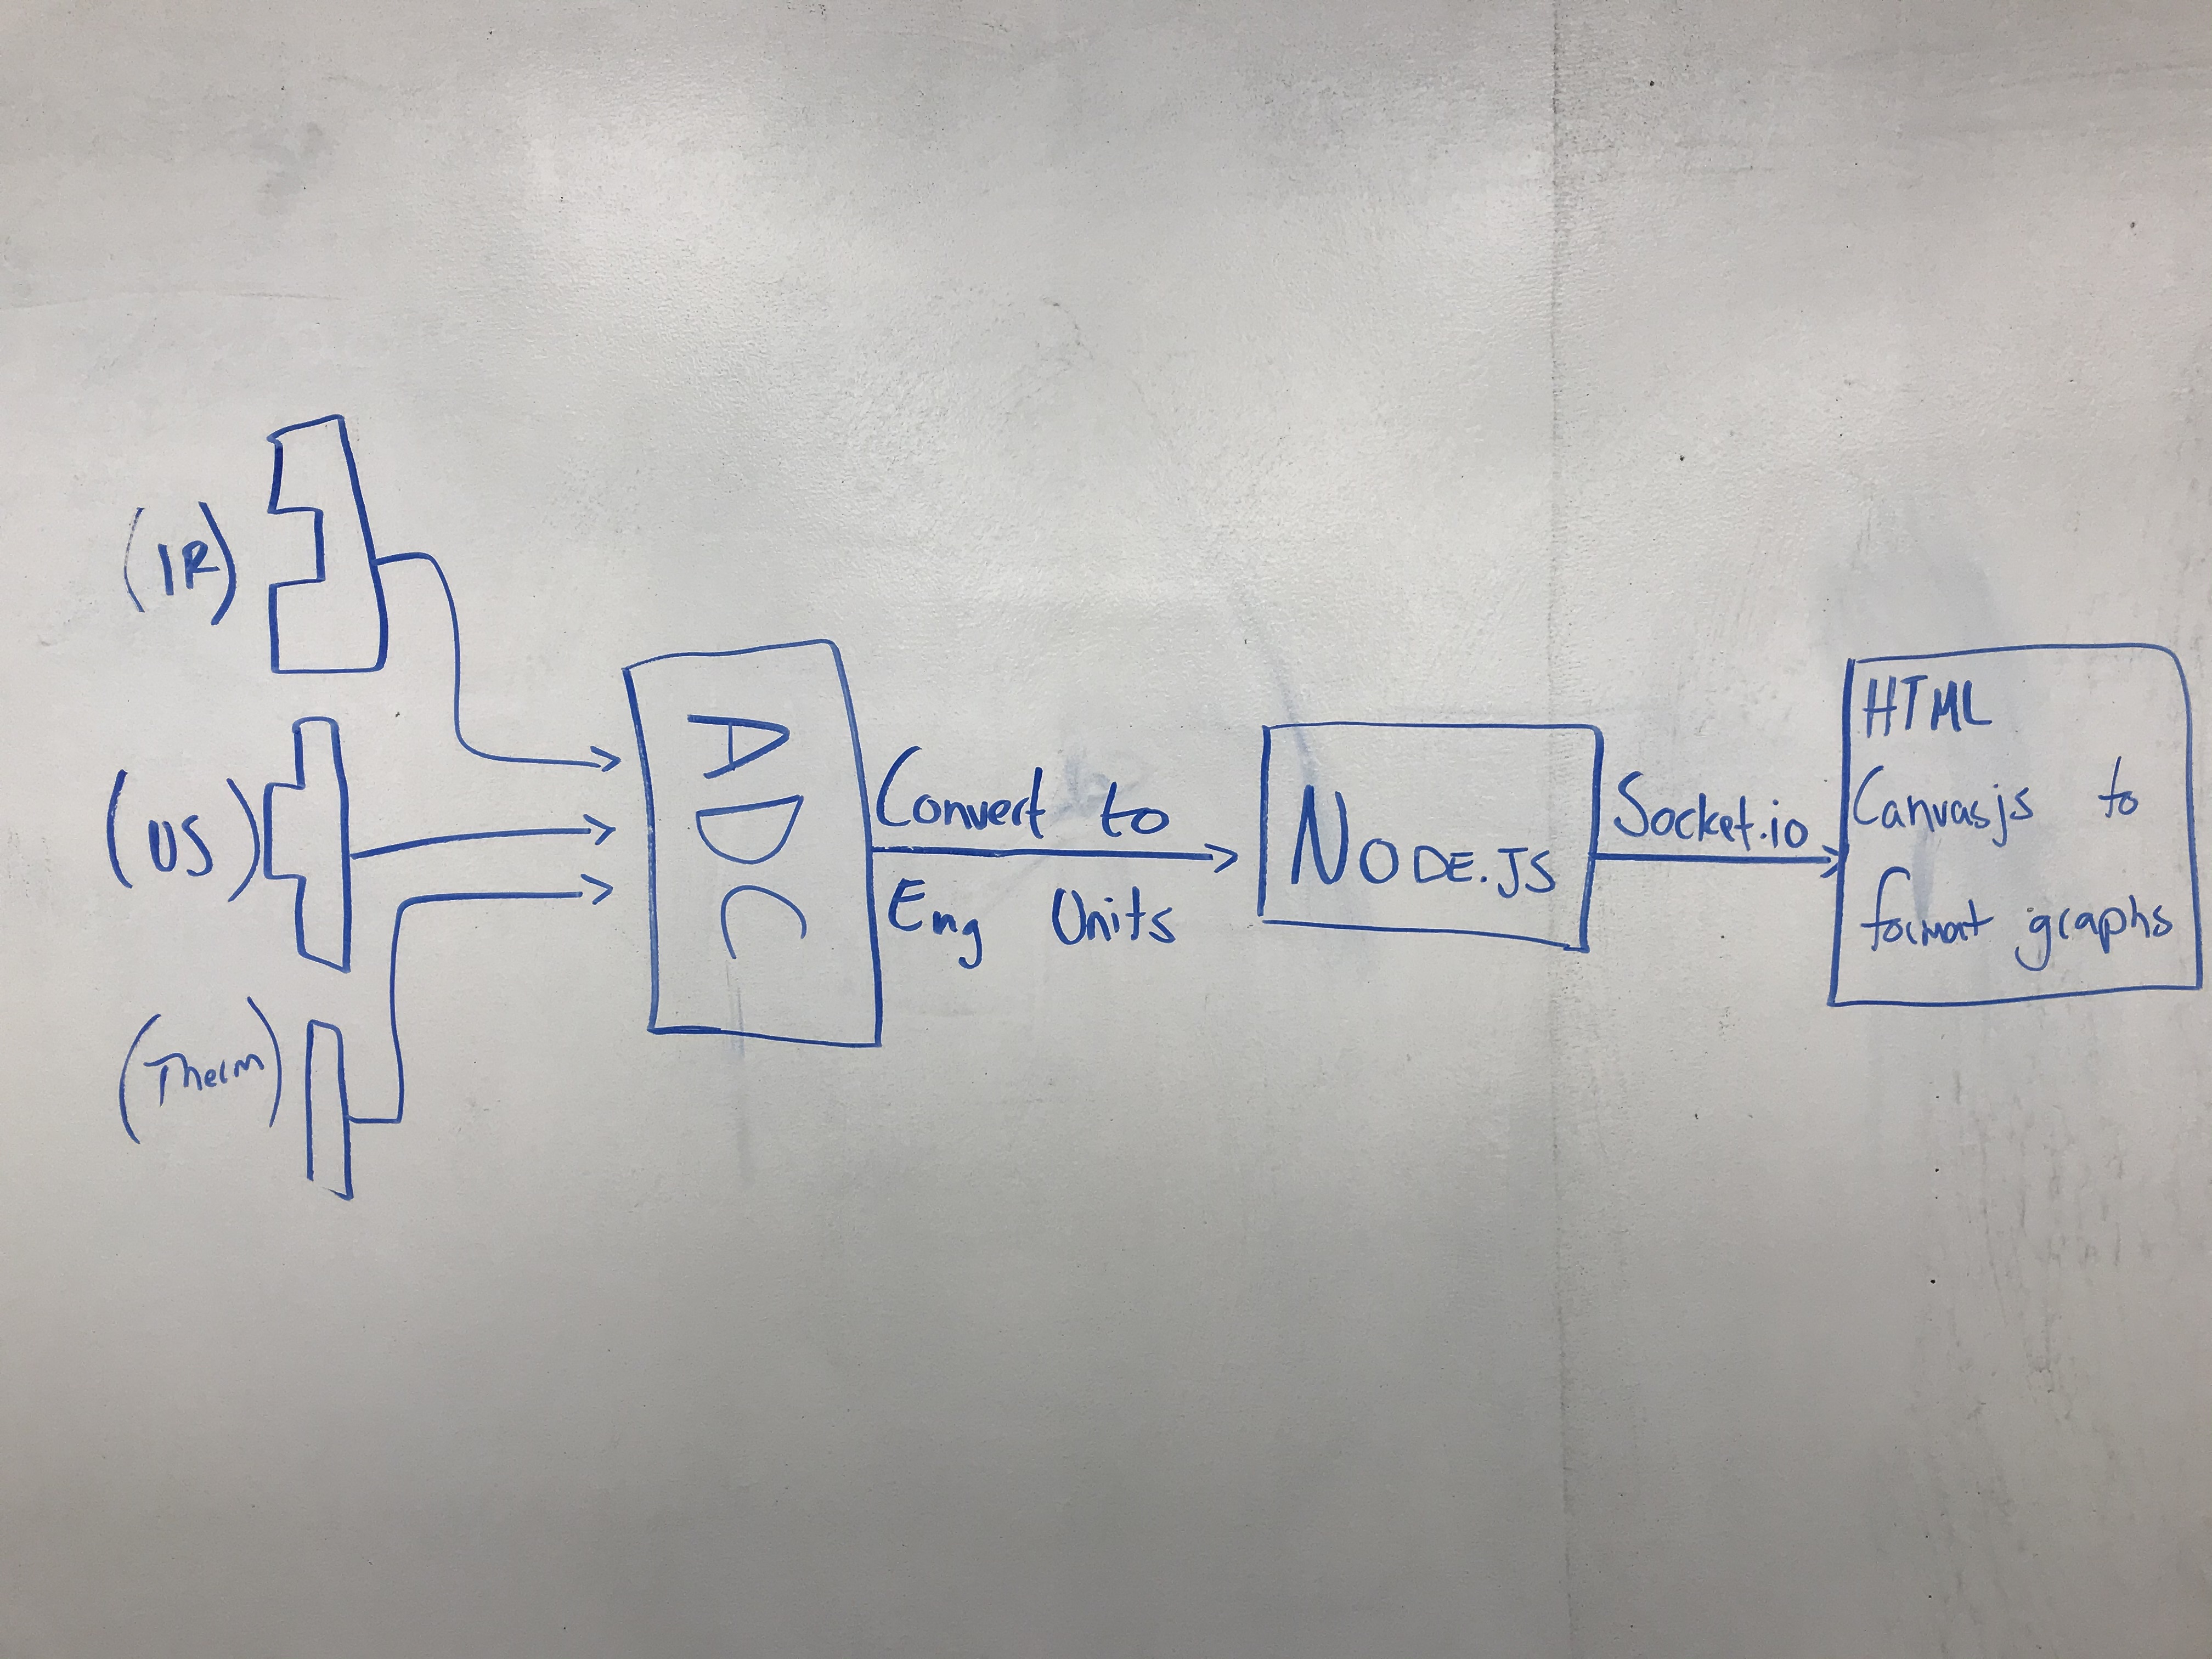 (IR)
(US)
(Therm)
ADC
Convert to
Eng Units
NODE.JS
Socket.io
HTML
Canvasjs to
format graphs